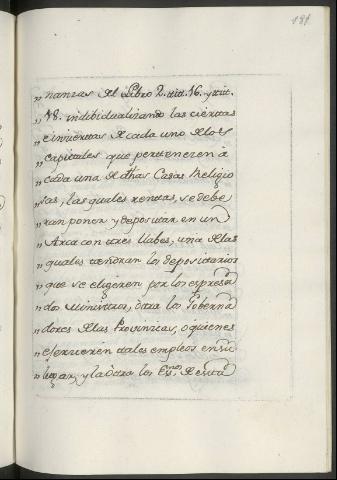 181.
„ nanzas del Libro 2. titt. 16. y titt.
„ 18. indibidualizando las ciertas
„ e inciertas de cada uno de los
„ capitales que pertenecen à
„ cada una de dhas Casas Religio
„ sas, las quales rentas, se debe
„ ran poner y depositar en un
„ Arca con tres llabes, una de las
„ quales tendran los depositarios
„ que se eligeren por los expresa
„ dos Ministros, otra los Goberna
„ dores de las Provincias, ò quienes
„ esercieren tales empleos en su
„ lugar, y la otra los Essnos. de esta